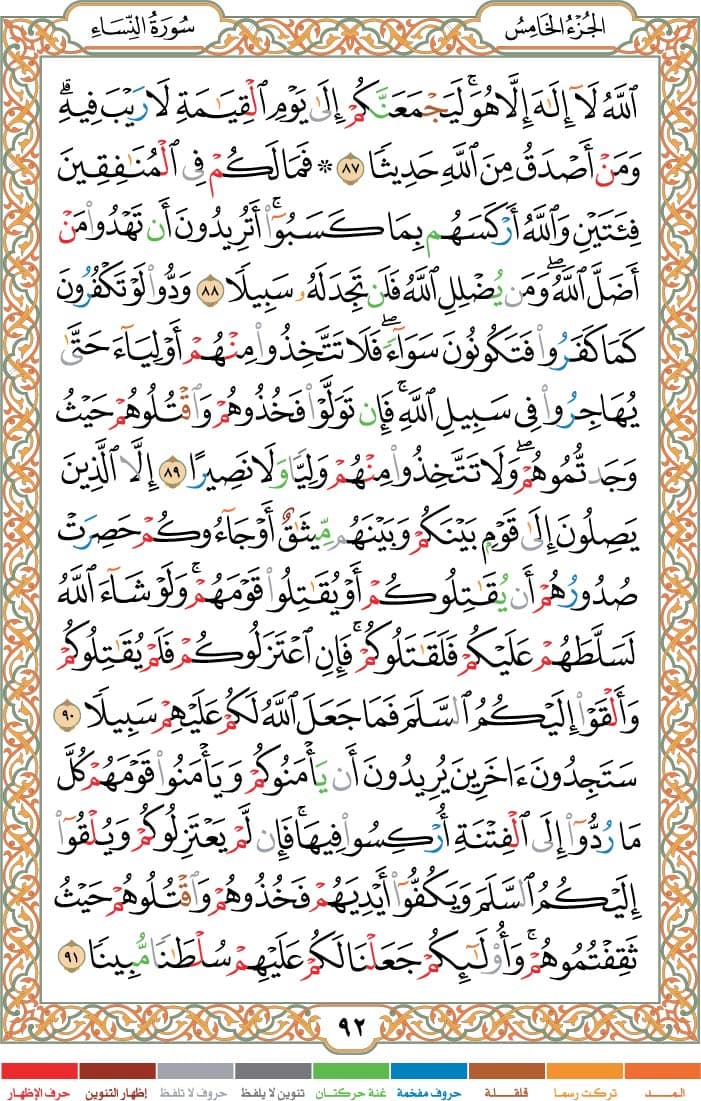 الجُزْءُ الخَامِسُ
سُورَةُ النِّسَاءِ
ٱللَّهُ لَآ إِلَٰهَ إِلَّا هُوَۚ لَيَجْمَعَنَّكُمْ إِلَىٰ يَوْمِ ٱلْقِيَٰمَةِ لَا رَيْبَ فِيهِۗ
وَمَنْ أَصْدَقُ مِنَ ٱللَّهِ حَدِيثًا ٨٧ ۞ فَمَا لَكُمْ فِى ٱلْمُنَٰفِقِينَ
فِئَتَيْنِ وَٱللَّهُ أَرْكَسَهُم بِمَا كَسَبُوٓا۟ۚ أَتُرِيدُونَ أَن تَهْدُوا۟ مَنْ
أَضَلَّ ٱللَّهُۖ وَمَن يُضْلِلِ ٱللَّهُ فَلَن تَجِدَ لَهُۥ سَبِيلًا ٨٨ وَدُّوا۟ لَوْ تَكْفُرُونَ
كَمَا كَفَرُوا۟ فَتَكُونُونَ سَوَآءًۖ فَلَا تَتَّخِذُوا۟ مِنْهُمْ أَوْلِيَآءَ حَتَّىٰ
يُهَاجِرُوا۟ فِى سَبِيلِ ٱللَّهِۚ فَإِن تَوَلَّوْا۟ فَخُذُوهُمْ وَٱقْتُلُوهُمْ حَيْثُ
وَجَدتُّمُوهُمْۖ وَلَا تَتَّخِذُوا۟ مِنْهُمْ وَلِيًّا وَلَا نَصِيرًا ٨٩ إِلَّا ٱلَّذِينَ
يَصِلُونَ إِلَىٰ قَوْمٍۭ بَيْنَكُمْ وَبَيْنَهُم مِّيثَٰقٌ أَوْ جَآءُوكُمْ حَصِرَتْ
صُدُورُهُمْ أَن يُقَٰتِلُوكُمْ أَوْ يُقَٰتِلُوا۟ قَوْمَهُمْۚ وَلَوْ شَآءَ ٱللَّهُ
لَسَلَّطَهُمْ عَلَيْكُمْ فَلَقَٰتَلُوكُمْۚ فَإِنِ ٱعْتَزَلُوكُمْ فَلَمْ يُقَٰتِلُوكُمْ
وَأَلْقَوْا۟ إِلَيْكُمُ ٱلسَّلَمَ فَمَا جَعَلَ ٱللَّهُ لَكُمْ عَلَيْهِمْ سَبِيلًا ٩٠
سَتَجِدُونَ ءَاخَرِينَ يُرِيدُونَ أَن يَأْمَنُوكُمْ وَيَأْمَنُوا۟ قَوْمَهُمْ كُلَّ
مَا رُدُّوٓا۟ إِلَى ٱلْفِتْنَةِ أُرْكِسُوا۟ فِيهَاۚ فَإِن لَّمْ يَعْتَزِلُوكُمْ وَيُلْقُوٓا۟
إِلَيْكُمُ ٱلسَّلَمَ وَيَكُفُّوٓا۟ أَيْدِيَهُمْ فَخُذُوهُمْ وَٱقْتُلُوهُمْ حَيْثُ
ثَقِفْتُمُوهُمْۚ وَأُو۟لَٰٓئِكُمْ جَعَلْنَا لَكُمْ عَلَيْهِمْ سُلْطَٰنًا مُّبِينًا ٩١
٩٢
المـــد تركت رسما قلقـــلة حروف مفخمة غنة حركتـان تنوين لا يلفظ حروف لا تلفظ إظهار التنوين حرف الإظهار